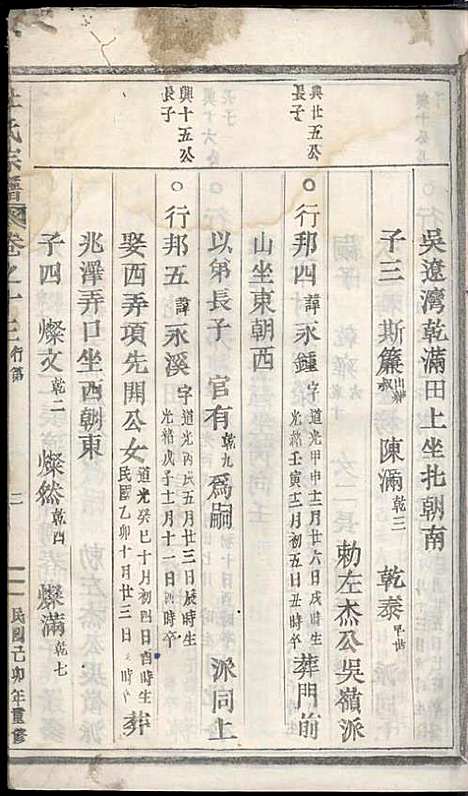 吳遼灣乾滿田上坐北朝南
子三 斯簾出繼叔 陳滿乾三 乾泰早世
勅左杰公吳嶺派
興廿五公長子
○行邦四諱永鍾字 道光甲申十一月廿六日戌時生 光緒壬寅十二月初五日丑時卒 葬門前
山坐東朝西
以弟長子 官有乾九 爲嗣 派同上
興十五公長子
○行邦五諱永溪字 道光丙戌五月廿三日辰時生 光緒戊子十二月十一日 時卒
娶西弄項先開公女 道光癸巳十月初四日酉時生 民國乙卯十月廿三日 時卒 葬
兆澤弄口坐西朝東
子四 燦文乾二 燦然乾四 燦滿乾七
氏宗譜 卷之十三 行第 三 民國己卯年重修